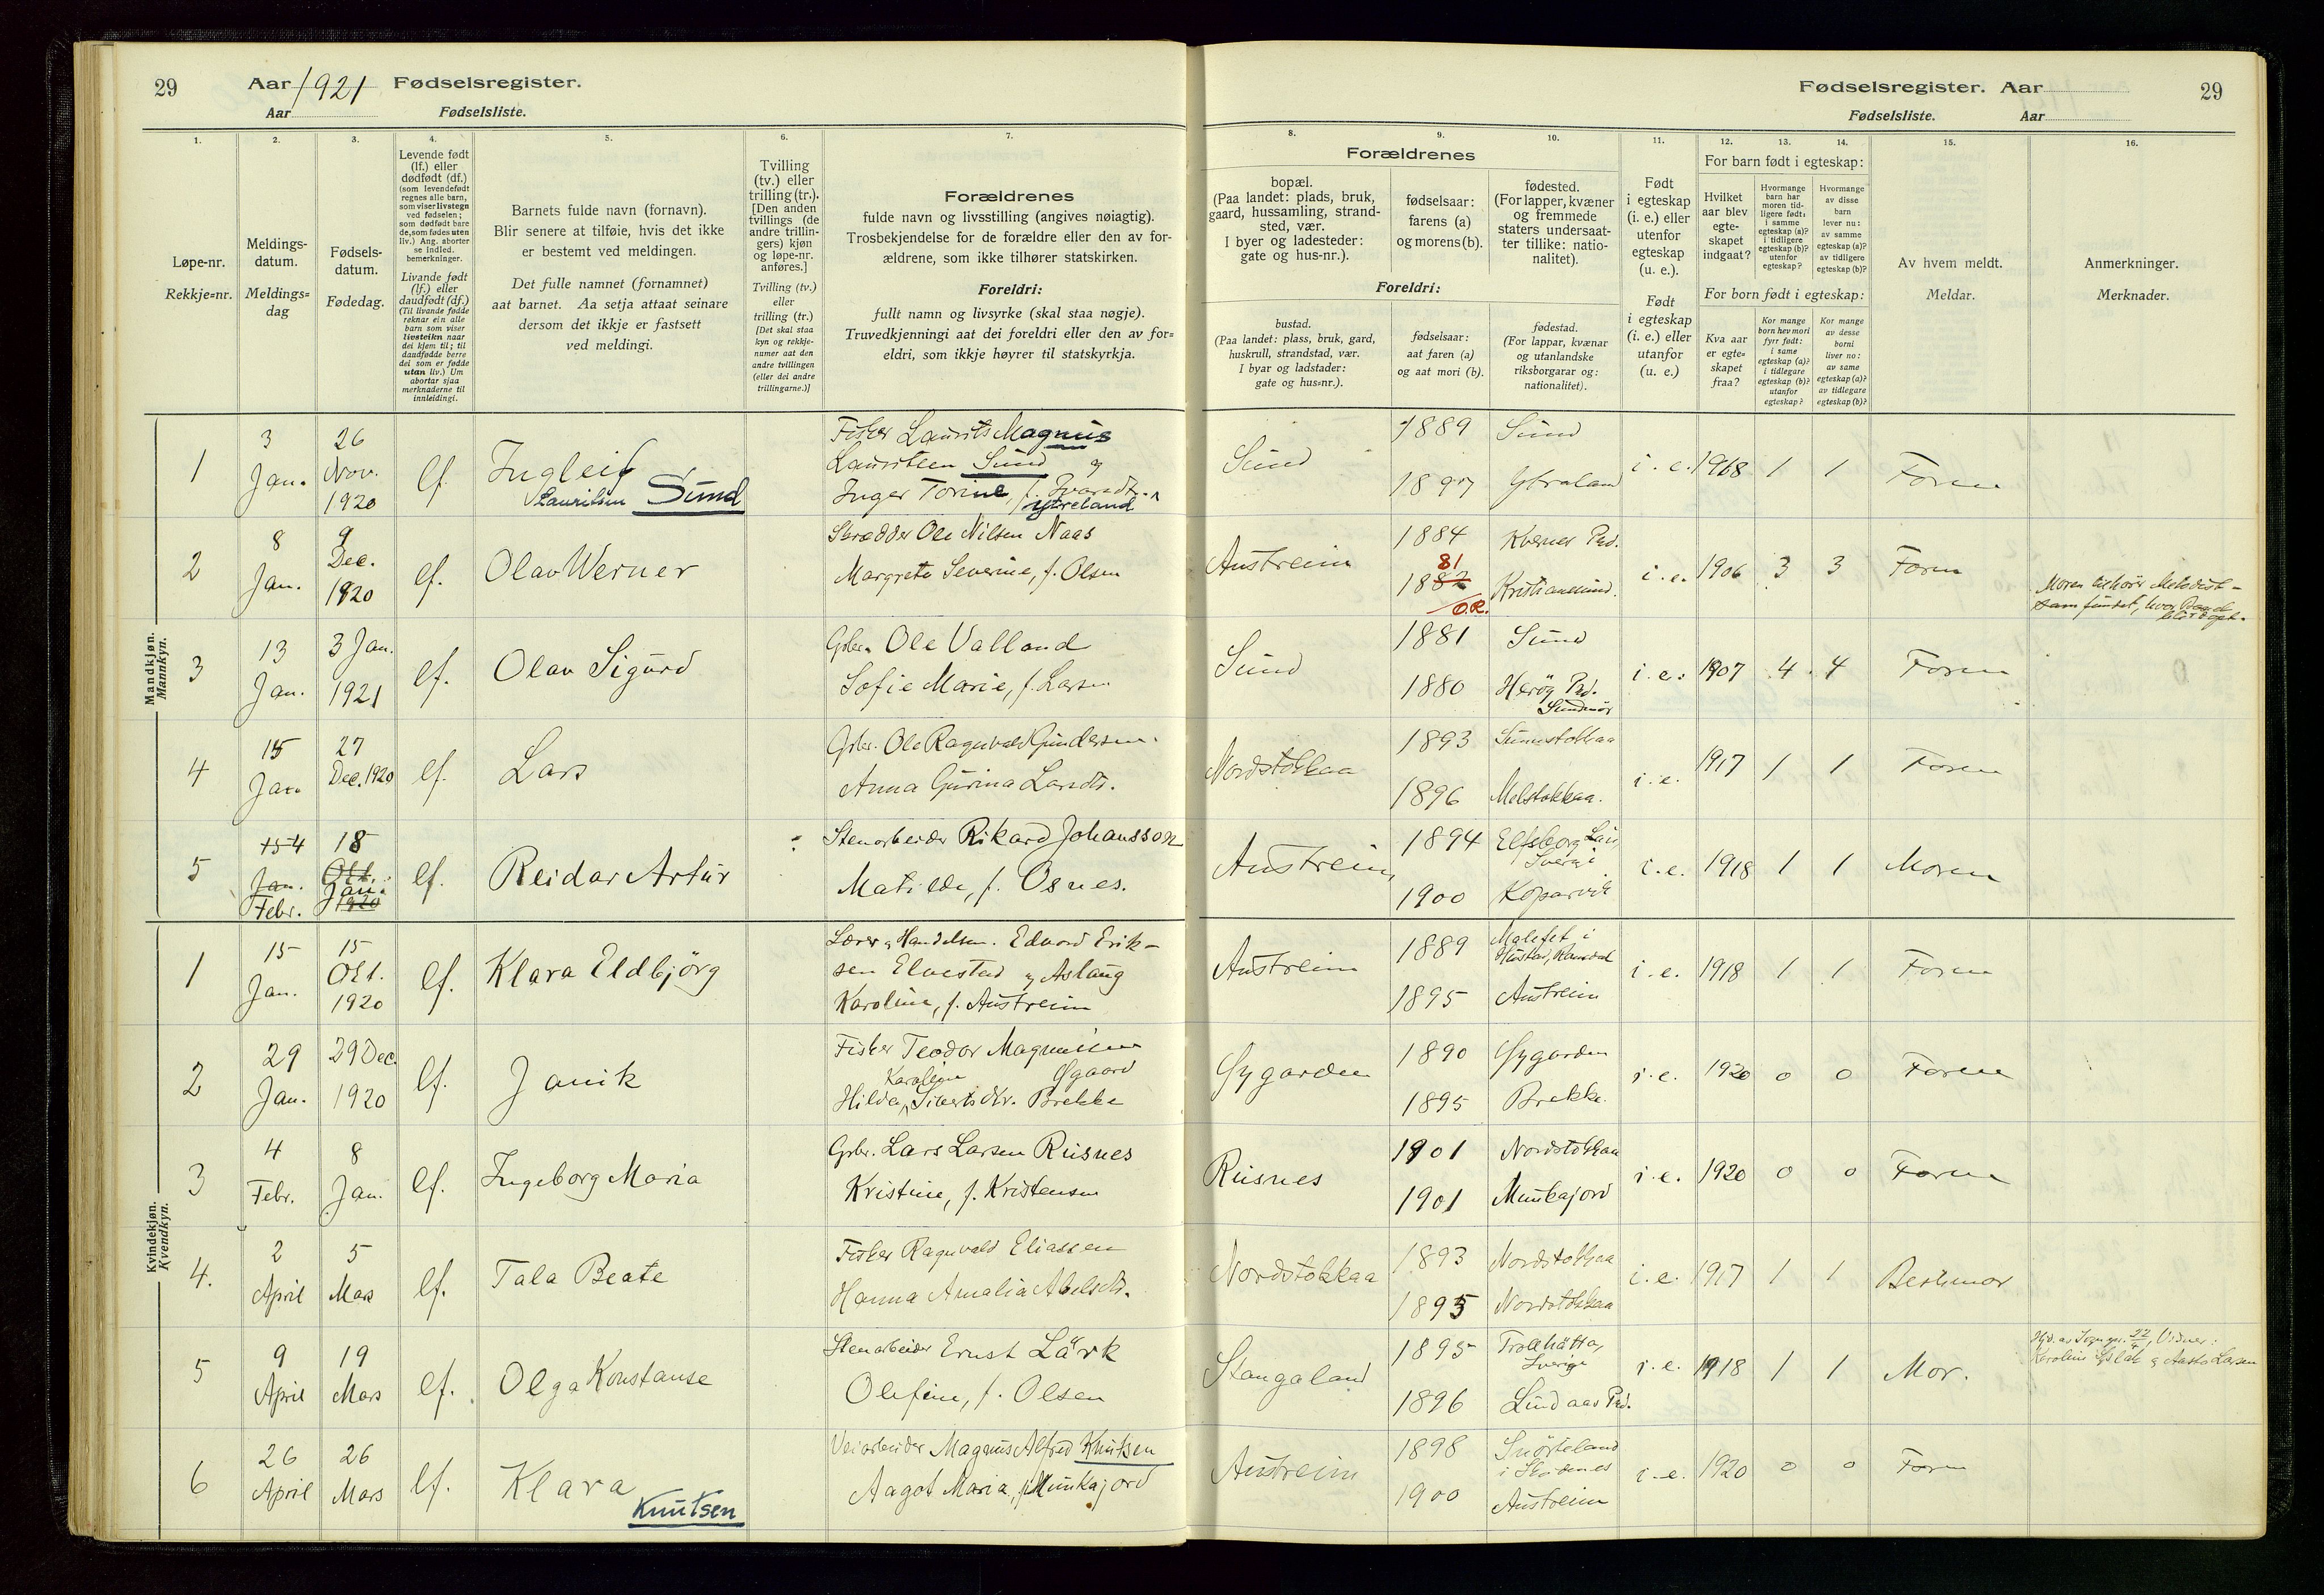 29
Aar 1921 Fødselsregister.
Aar Fødselsliste.
Fødselsregister. Aar
29
Fødselsliste. Aar
1.
Løpe-nr.
Rekkje=nr.
2.
Meldings-
datum.
Meldings=
dag
3.
Fødsels-
datum.
Fødedag.
4.
Levende født
(lf.) eller
dødfødt (df.)
(som levendefødt
regnes alle barn,
som viser livstegn
ved fødselen;
som dødfødt bare
de, som fødes uten
liv.) Ang. aborter
se indled.
bemerkninger.
Livande født
(lf.) eller
daudfødt (df.)
(Til livande fødde
reknar ein alle
barn som viser
livsteikn naar
dei kjem til; til
daudfødde berre
dei som er fødde
utan liv.) Um
abortar sjaa
merknaderne til
innleidingi.
5.
Barnets fulde navn (fornavn).
Blir senere at tilføie, hvis det ikke
er bestemt ved meldingen.
Det fulle namnet (fornamnet)
aat barnet. Aa setja attaat seinare
dersom det ikkje er fastsett
ved meldingi.
6.
Tvilling
(tv.) eller
trilling (tr.).
[Den anden
tvillings (de
andre trillin-
gers) kjøn
og løpe-nr.
anføres.]
Tvilling (tv.)
eller
trilling (tr.)
[Det skal staa
kyn og rekkje-
numer aat den
andre tvillingen
(eller dei andre
trillingarne.)]
7.
Forældrenes
fulde navn og livsstilling (angives nøiagtig).
Trosbekjendelse for de forældre eller den av for-
ældrene, som ikke tilhører statskirken.
Foreldri:
fullt namn og livsyrke (skal staa nøgje).
Truvedkjenningi aat dei foreldri eller den av for=
eldri, som ikkje høyrer til statskyrkja.
8. 9. 10.
Forældrenes
bopæl.
(Paa landet: plads, bruk,
gaard, hussamling, strand-
sted, vær.
I byer og ladesteder:
gate og hus-nr.).
fødselsaar:
farens (a)
og morens (b).
fødested.
(For lapper, kvæner
og fremmede
staters undersaat-
ter tillike: natio-
nalitet).
Foreldri:
bustad.
(Paa landet: plass, bruk, gard,
huskrull, strandstad, vær.
I byar og ladstader:
gate og hus=nr.).
fødselsaar:
aat faren (a)
og aat mori (b).
fødestad.
(For lappar, kvænar
og utanlandske
riksborgarar og:
nationalitet).
11.
Født
i egteskap
(i. e.) eller
utenfor
egteskap
(u. e.).
Født
i egteskap
(i. e.) eller
utanfor
egteskap
(u. e.)
12. 13. 14.
For barn født i egteskap:
Hvilket
aar blev
egte-
skapet
indgaat?
Hvormange
barn har
moren tid-
ligere født:
i samme
egteskap (a)?
i tidligere
egteskap (b)?
utenfor
egteskap?
Hvormange
av disse
barn
lever nu:
av samme
egteskap (a)?
av tidligere
egteskap (b)?
For born født i egteskap:
Kva aar
er egte=
skapet
fraa?
Kor mange
born hev mori
fyrr født:
i same
egteskap (a)?
i tidlegare
egteskap (b)?
utanfor
egteskap?
Kor mange
av desse
borni
liver no:
av same
egteskap (a)?
av tidlegare
egteskap (b)?
15.
Av hvem meldt.
Meldar.
16.
Anmerkninger.
Merknader.
Mandkjøn.
Mannkyn.
1
3
Jan.
26
Nov.
1920
lf.
Ingleif
Lauritsen Sund
Fisker Laurits Magnus
Lauritsen Sund og
Inger Torine, f.
Ytreland
Sund
1889 Sund
1897 Ytraland
i. e. 1 1 Faren
2
8
Jan.
9
Dec.
1920
lf.
Olav Werner
Skrædder Ole Nilsen Naas
Margrete Severine, f. Olsen
Austreim
1884 Kværnes Pgd.
81
1882 Kristiansund.
O.R.
i. e. 1906 3 3 Faren
Moren tilhører Metodist-
samfundet, hvor Barnet
blir døpt.
3
13
Jan.
3 Jan.
1921
lf.
Olav Sigurd
Gbr. Ole Valland
Sofie Marie, f. Larsen
Sund
1881 Sund
1880 Herøy Pgd.
Sundmør
i. e. 1907 4 4 Faren
4
15
Jan.
27
Dec. 1920
lf.
Lars
Gbr. Ole Ragnvald Gundersen.
Anna Gurina Larsdtr.
Nordstokkaa
1893 Sunnstokkaa
1896 Melstokkaa.
i. e. 1917 1 1 Faren
5
15 4
Jan.
Febr.
18
Okt.
Jan.
1920
lf.
Reidar Artur
Stenarbeider Rikard Johansson
Matilde, f. Osnes.
Austreim
1894 Elfsborg Län,
Sverige
1900 Kopervik
i. e. 1918 1 1 Moren
Kvindekjøn.
Kvendkyn.
1
15
Jan.
15
Okt.
1920
lf.
Klara Eldbjörg
Lærer og Handelsm. Edvard Erik-
sen Elvestad og Aslaug
Karoline, f. Austreim
Austreim
1889
1895 Austreim
i. e. 1918 1 1 Faren
2
29
Jan.
29 Dec.
1920
lf.
Janik
Fisker Teodor Magnussen
Karoline Øgaard
Hilda, Sivertsdtr. Brekke
Øygarden
1890 Øygarden
1895 Brekke.
i. e. 1920 0 0 Faren
3
4
Febr.
8
Jan.
lf.
Ingeborg Maria
Gbr. Lars Larsen Risnes
Kristine, f. Kristensen
Risnes
1901 Nordstokkaa
1901 Munkajord
i. e. 1920 0 0 Faren
4.
2
April
5
Mars
lf.
Tala Beate
Fisker Ragnvald Eliassen
Hanna Amalia Abelsdtr.
Nordstokkaa
1893 Nordstokkaa
1895 Nordstokkaa
i. e. 1917 1 1 Bestemor
5
9
April
19
Mars
lf.
Olga Konstanse
Stenarbeider Ernst Lärk
Olefine, f. Olsen
Stangaland
1895 Trollhätta,
Sverige
1896 Lindaas Pgd.
i. e. 1918 1 1 Mor.
Hjd. av Sogn.pr. Vidner:
Karoline og Aasta Larsen
6
26
April
26
Mars
lf.
Klara
Knutsen
Veiarbeider Magnus Alfred Knutsen
Aagot Maria, f. Munkajord
Austreim
1898 Snörteland
i Skudenes
1900 Austreim
i. e. 1920 0 0 Faren